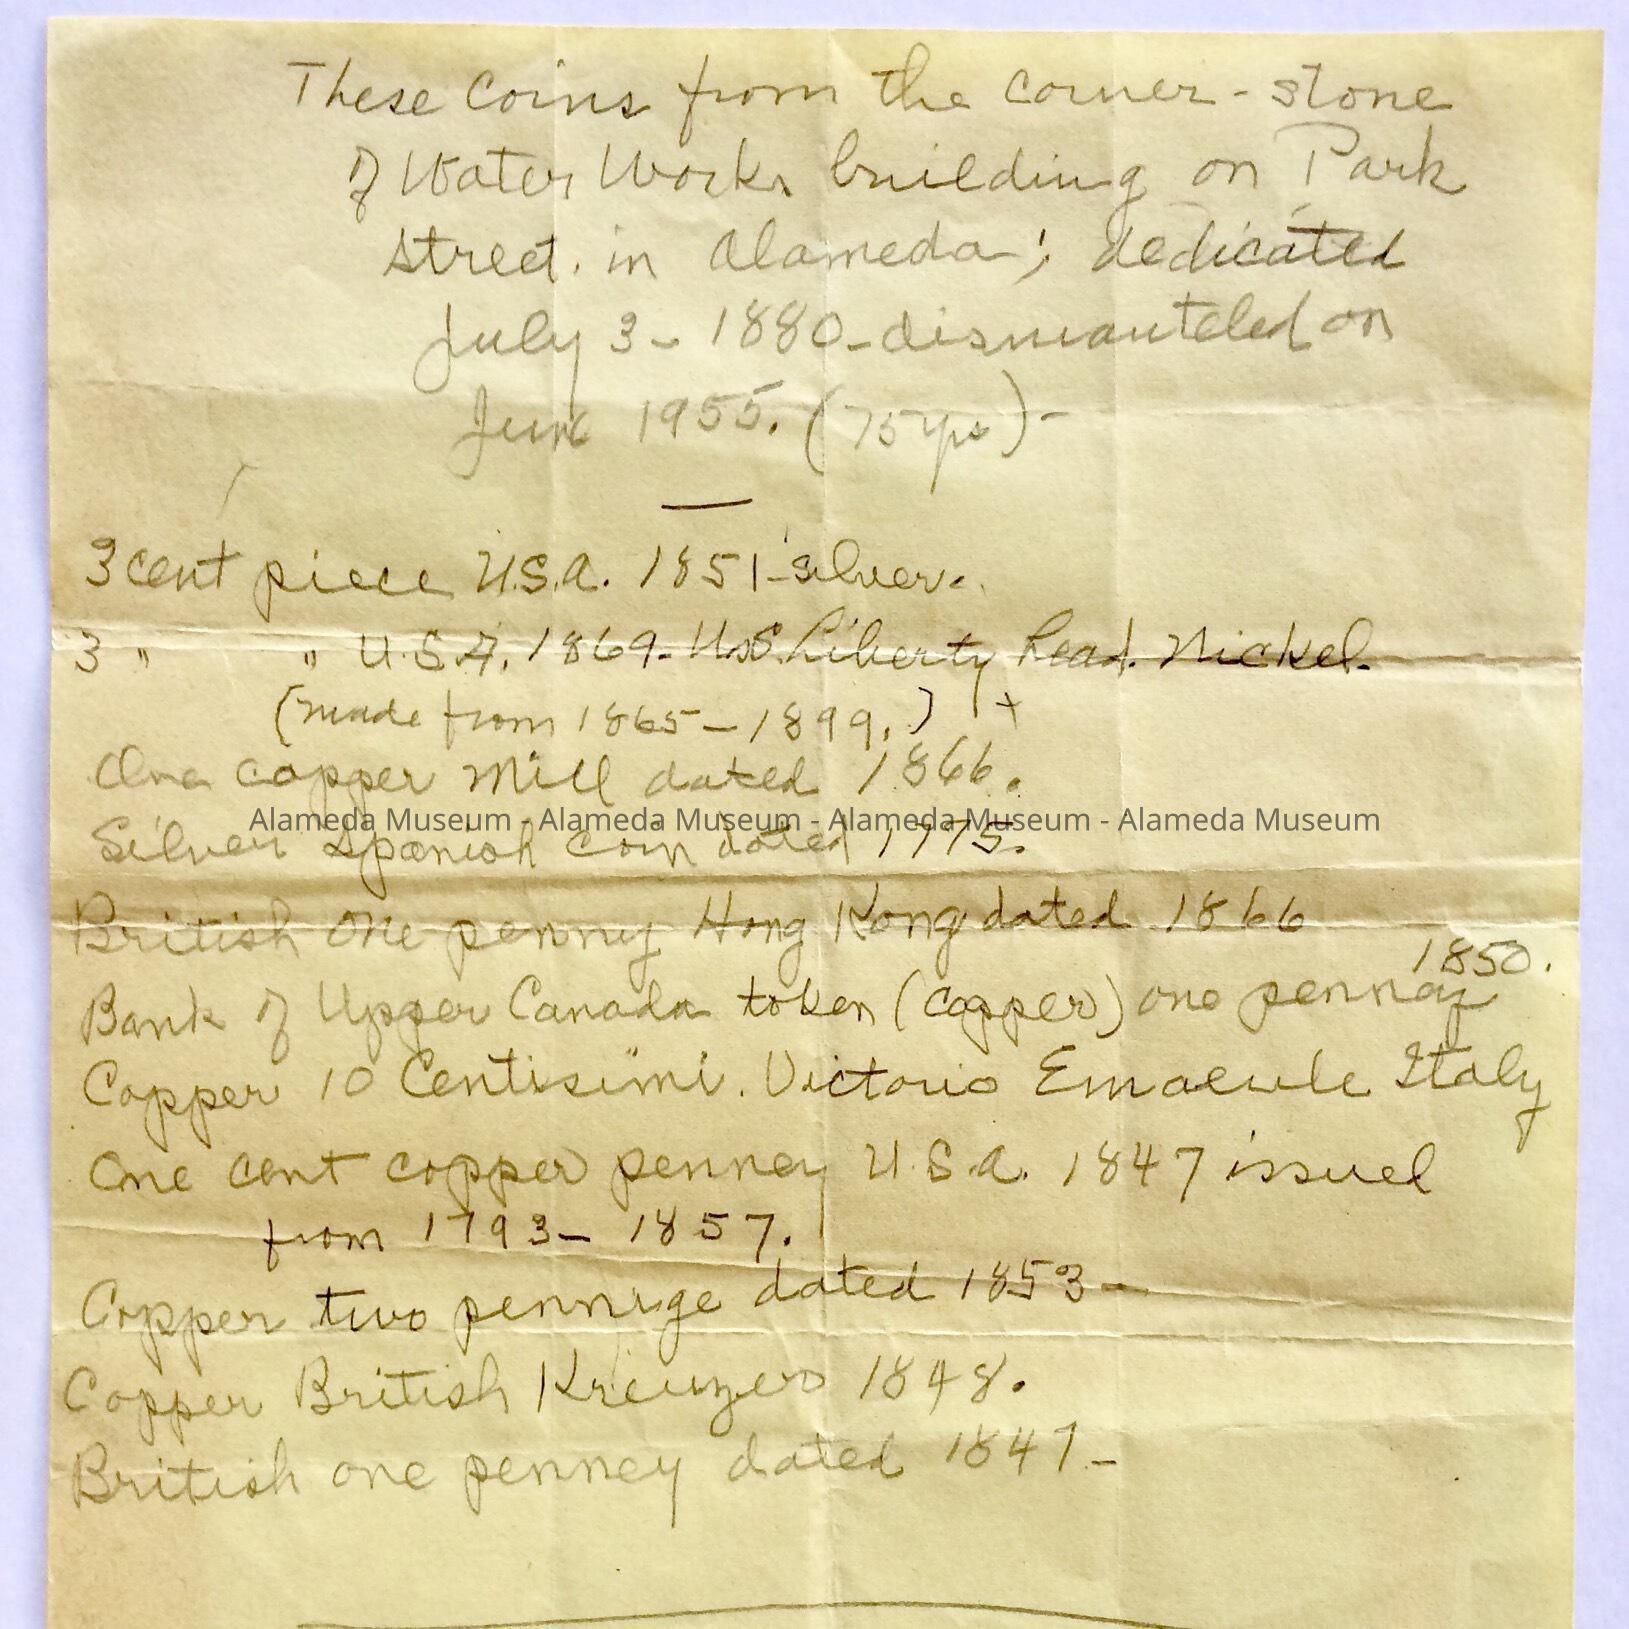 These Coins from the corner-stone
of Water Works building on Park
street. in Alameda; dedicated
July 3- 1880-dismanteled on
June 1955. (75 yrs)-
3 cent piece U.S.A. 1851-silver.
3 " " U.S.A. 1869- U.S. Liberty head. Nickel.
(made from 1865-1899.) +
One copper Mill dated 1866.
Alameda Museum - Alameda Museum - Alameda Museum - Alameda Museum
Silver Spanish coin dated 1775.
British One penny Hong Kong dated 1866
1850.
Bank of Upper Canada token (copper) one penney
Copper 10 Centisimi. Victorio Emaeule Italy
One cent copper penney U.S.A. 1847 issued
from 1793- 1857.
Copper two pennige dated 1853-
Copper British Kreuzero 1848.
British one penney dated 1847-